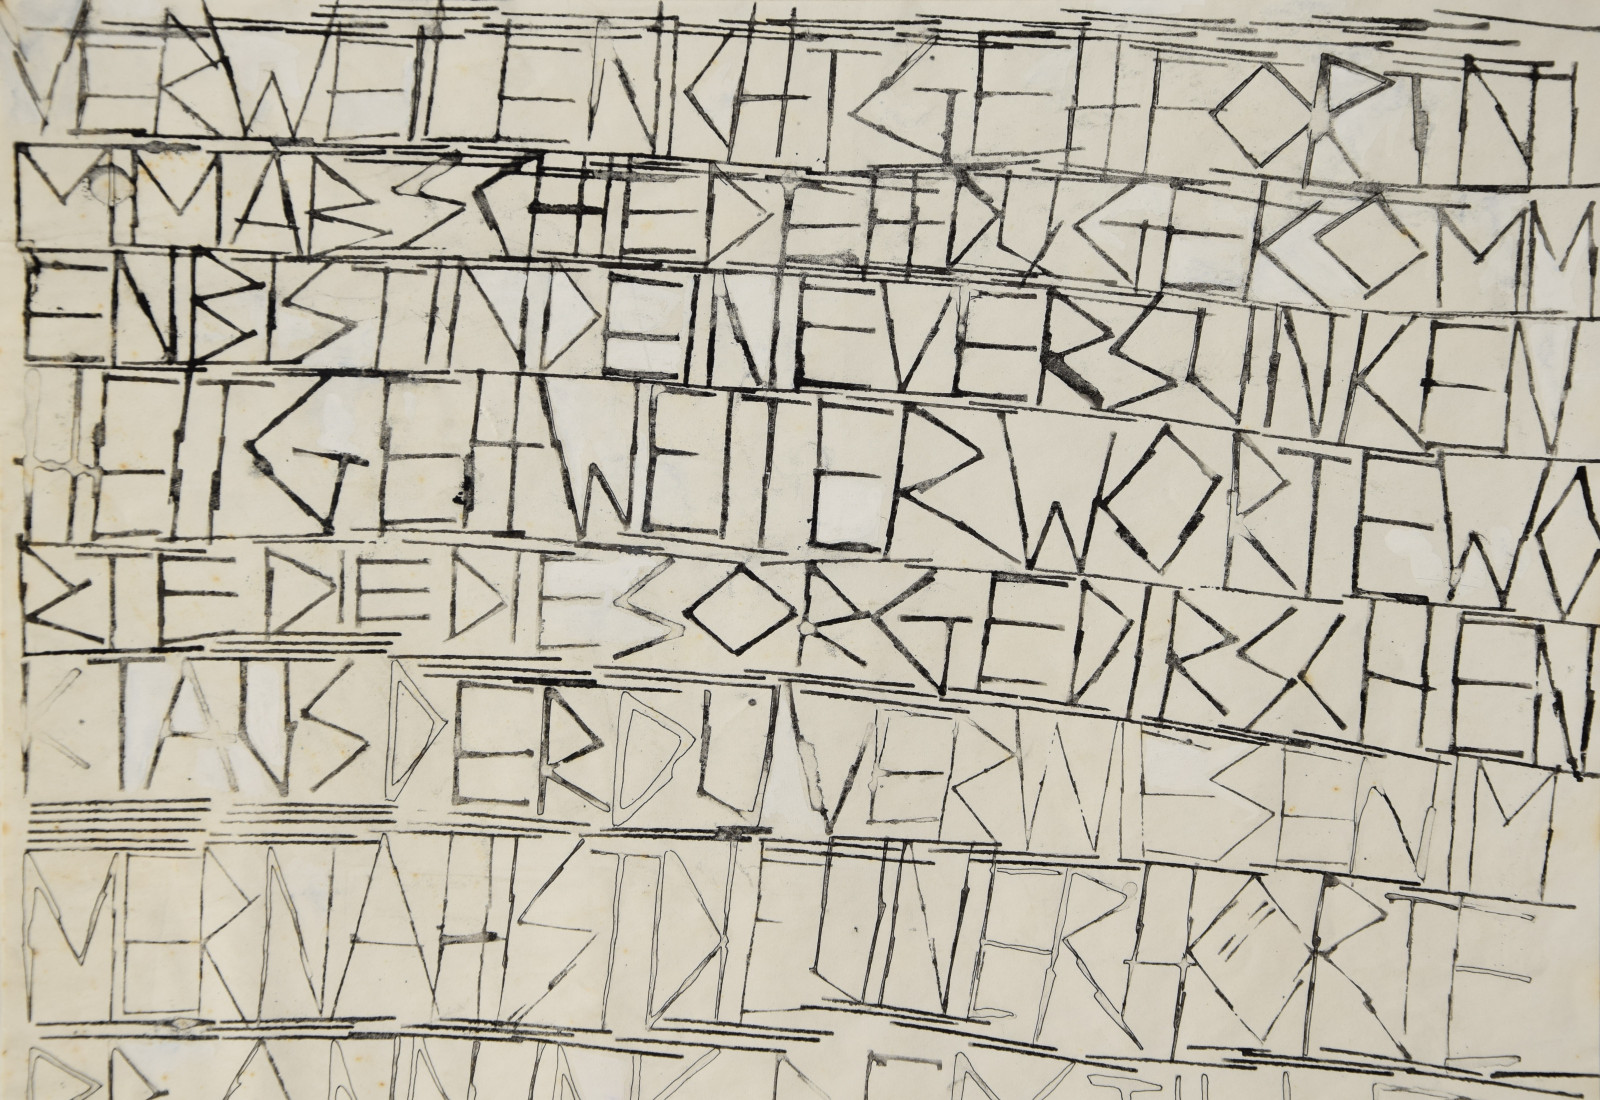 VERWEILE NICHT GEH FORT NI
MM ABSCHIED EH DU GEKOMM
EN BIST IN DEINE VERSUNKEN
HEIT GEH WEITER WORTE WO
RTE DIE DIE SORGE DIR SCHEN
KT AUS DER DU VERWIESEN IM
MER NAH IST DIE UNERHÖRTE